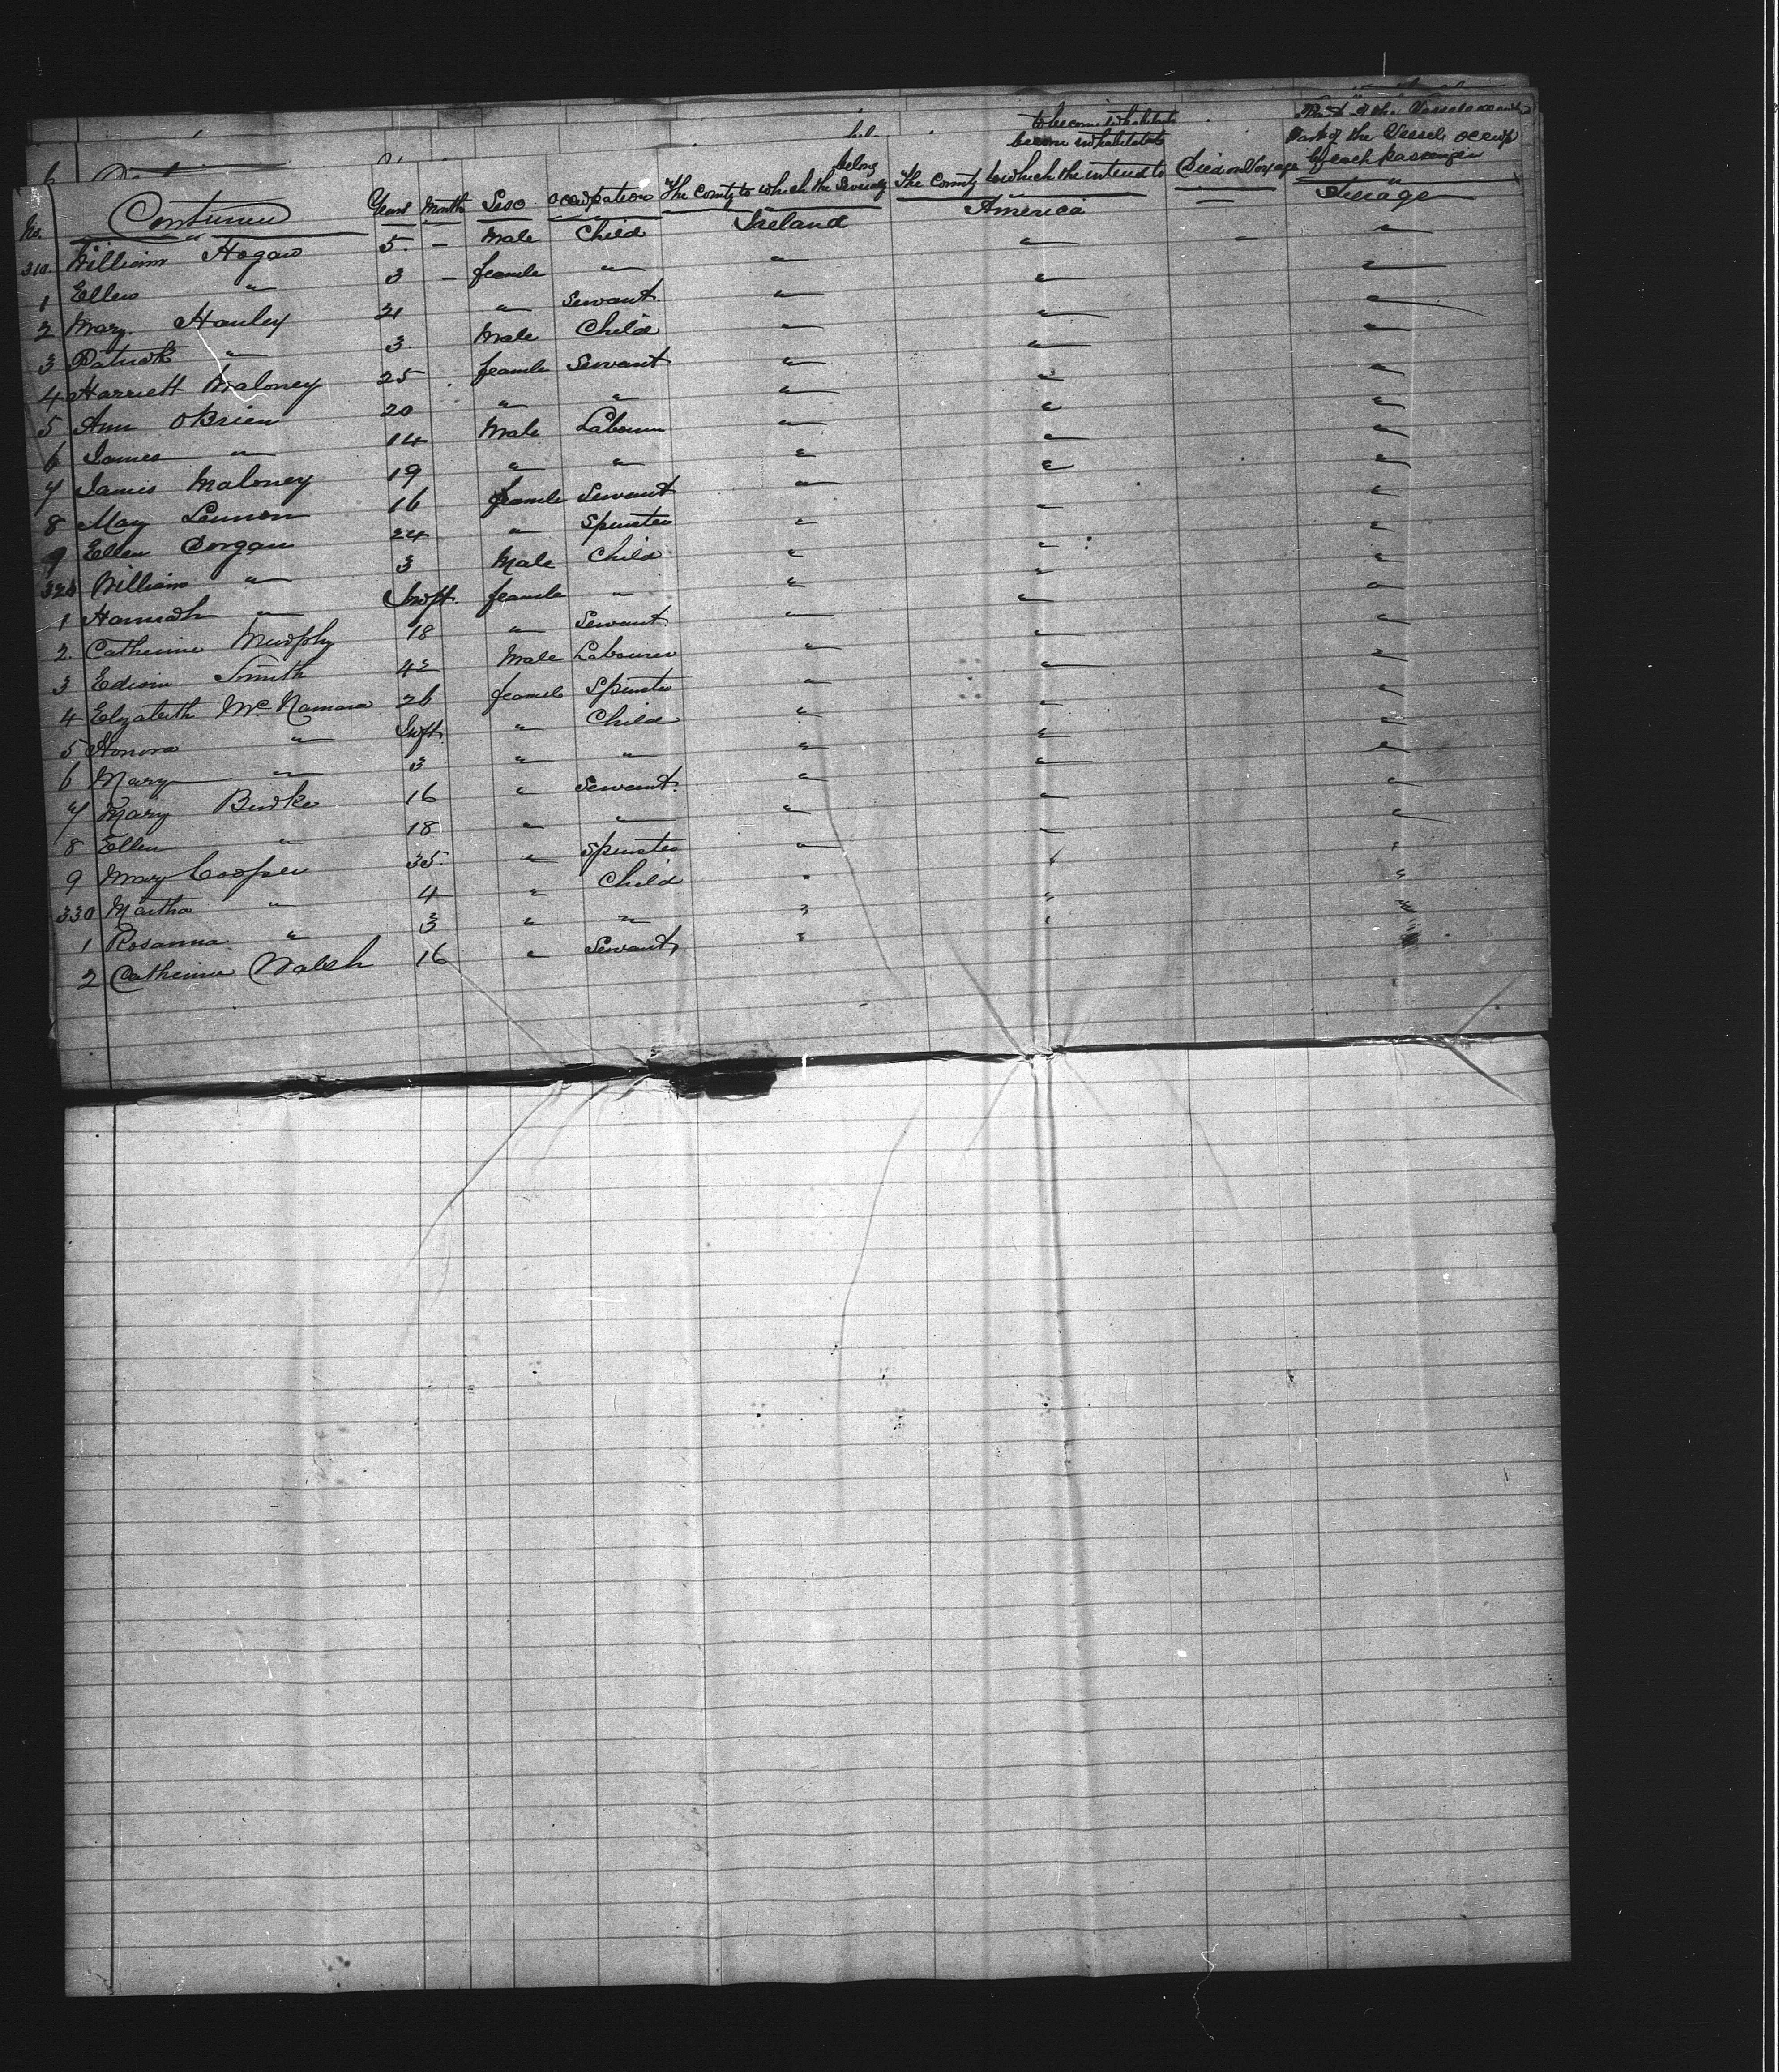 No. Continued Years Months Sex Occupation The County to which the Severaly belong The County to which the intend to become inhabitants Died on Voyage Part of the Vessel occup by each passenger
310. William Hogan 5 – Male Child Ireland America – Steerage
1 Ellen " 3 – feamle " " " – "
2 Mary Hanley 21 " Servant " " "
3 Patrick " 3 Male Child " " "
4 Harriett Maloney 25 feamle Servant " " "
5 Ann OBrien 20 " " " " "
6 James " 14 Male Labourer " " "
7 James Maloney 19 " " " " "
8 May Lennon 16 feamle Servant " " "
9 Ellen Dorgan 24 " Spinster " " "
320 William " 3 Male Child " " "
1 Hannah " Inft. feamle " " " "
2. Catherine Murphy 18 " Servant " " "
3 Edwin Smith 42 Male Labourer " " "
4 Elizabeth McNamara 26 feamle Spinster " " "
5 Honora " Inft. " Child " " "
6 Mary " 3 " " " " "
7 Mary Burke 16 " Servant " " "
8 Ellen " 18 " " " " "
9 Mary Cooper 35 " Spinster " " "
330 Martha " 4 " Child " " "
1 Rosanna " 3 " " " " "
2 Catherine Walsh 16 " Servant " " "